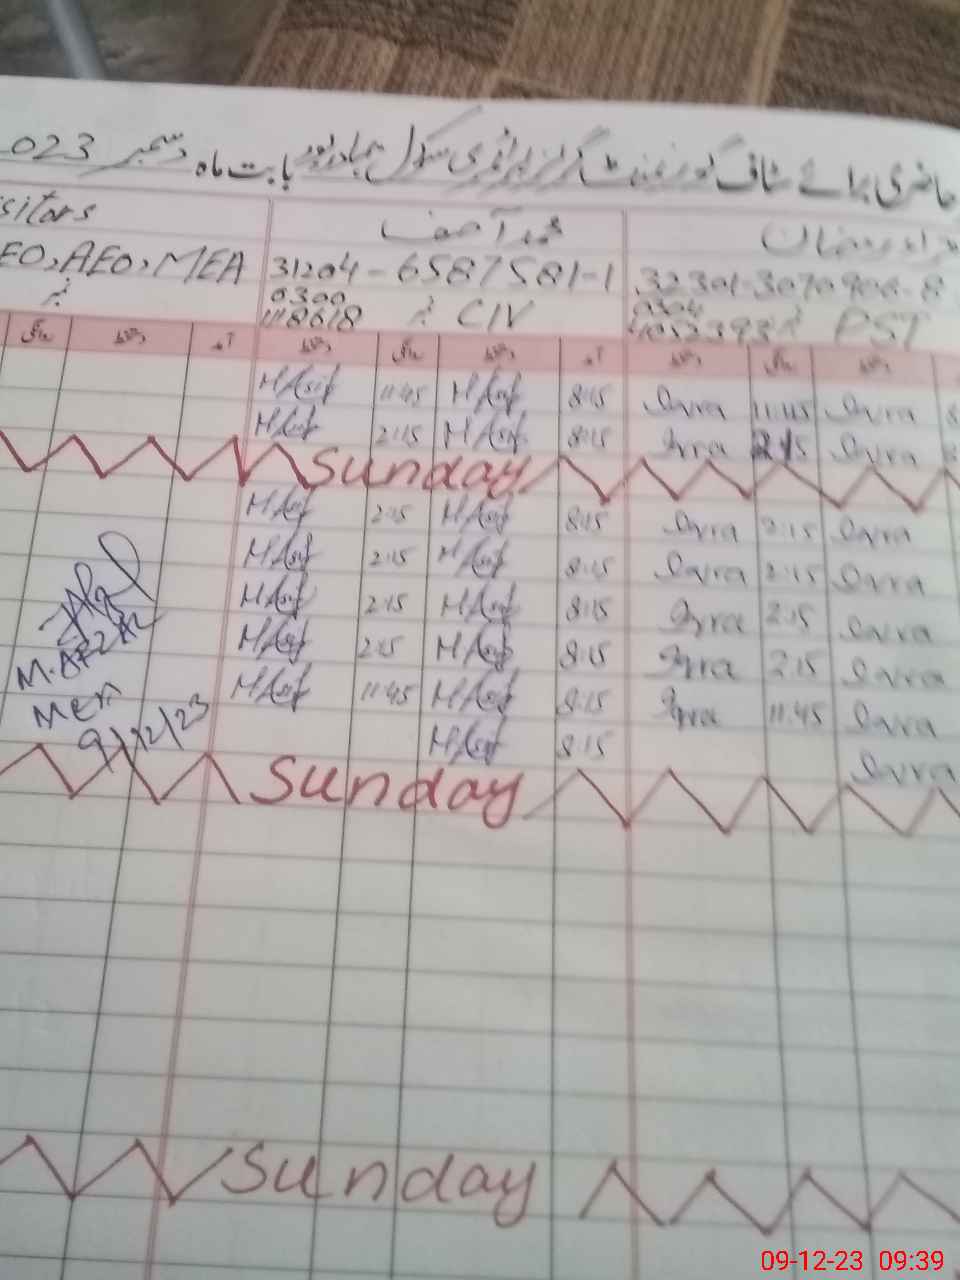 حاضری برائے سٹاف گورنمنٹ گرلز پرائمری سکول بہادرپور بابت ماہ دسمبر 023
sitors
محمد آصف
EO, AEO, MEA
31204-6587581-1
32301-3070900-8
0300
1118618
CIV
0304
PST
M Asif 11:45 M Asif 8:15 Iqra 11:45 Iqra
M Asif 2:15 M Asif 8:15 Iqra 2:15 Iqra
Sunday
M Asif 2:15 M Asif 8:15 Iqra 2:15 Iqra
M Asif 2:15 M Asif 8:15 Iqra 2:15 Iqra
M Asif 2:15 M Asif 8:15 Iqra 2:15 Iqra
M Asif 2:15 M Asif 8:15 Iqra 2:15 Iqra
M Asif 11:45 M Asif 8:15 Iqra 11:45 Iqra
M Asif 8:15 Iqra
M. AFZAL
Mea
9/12/23
Sunday
Sunday
09-12-23 09:39